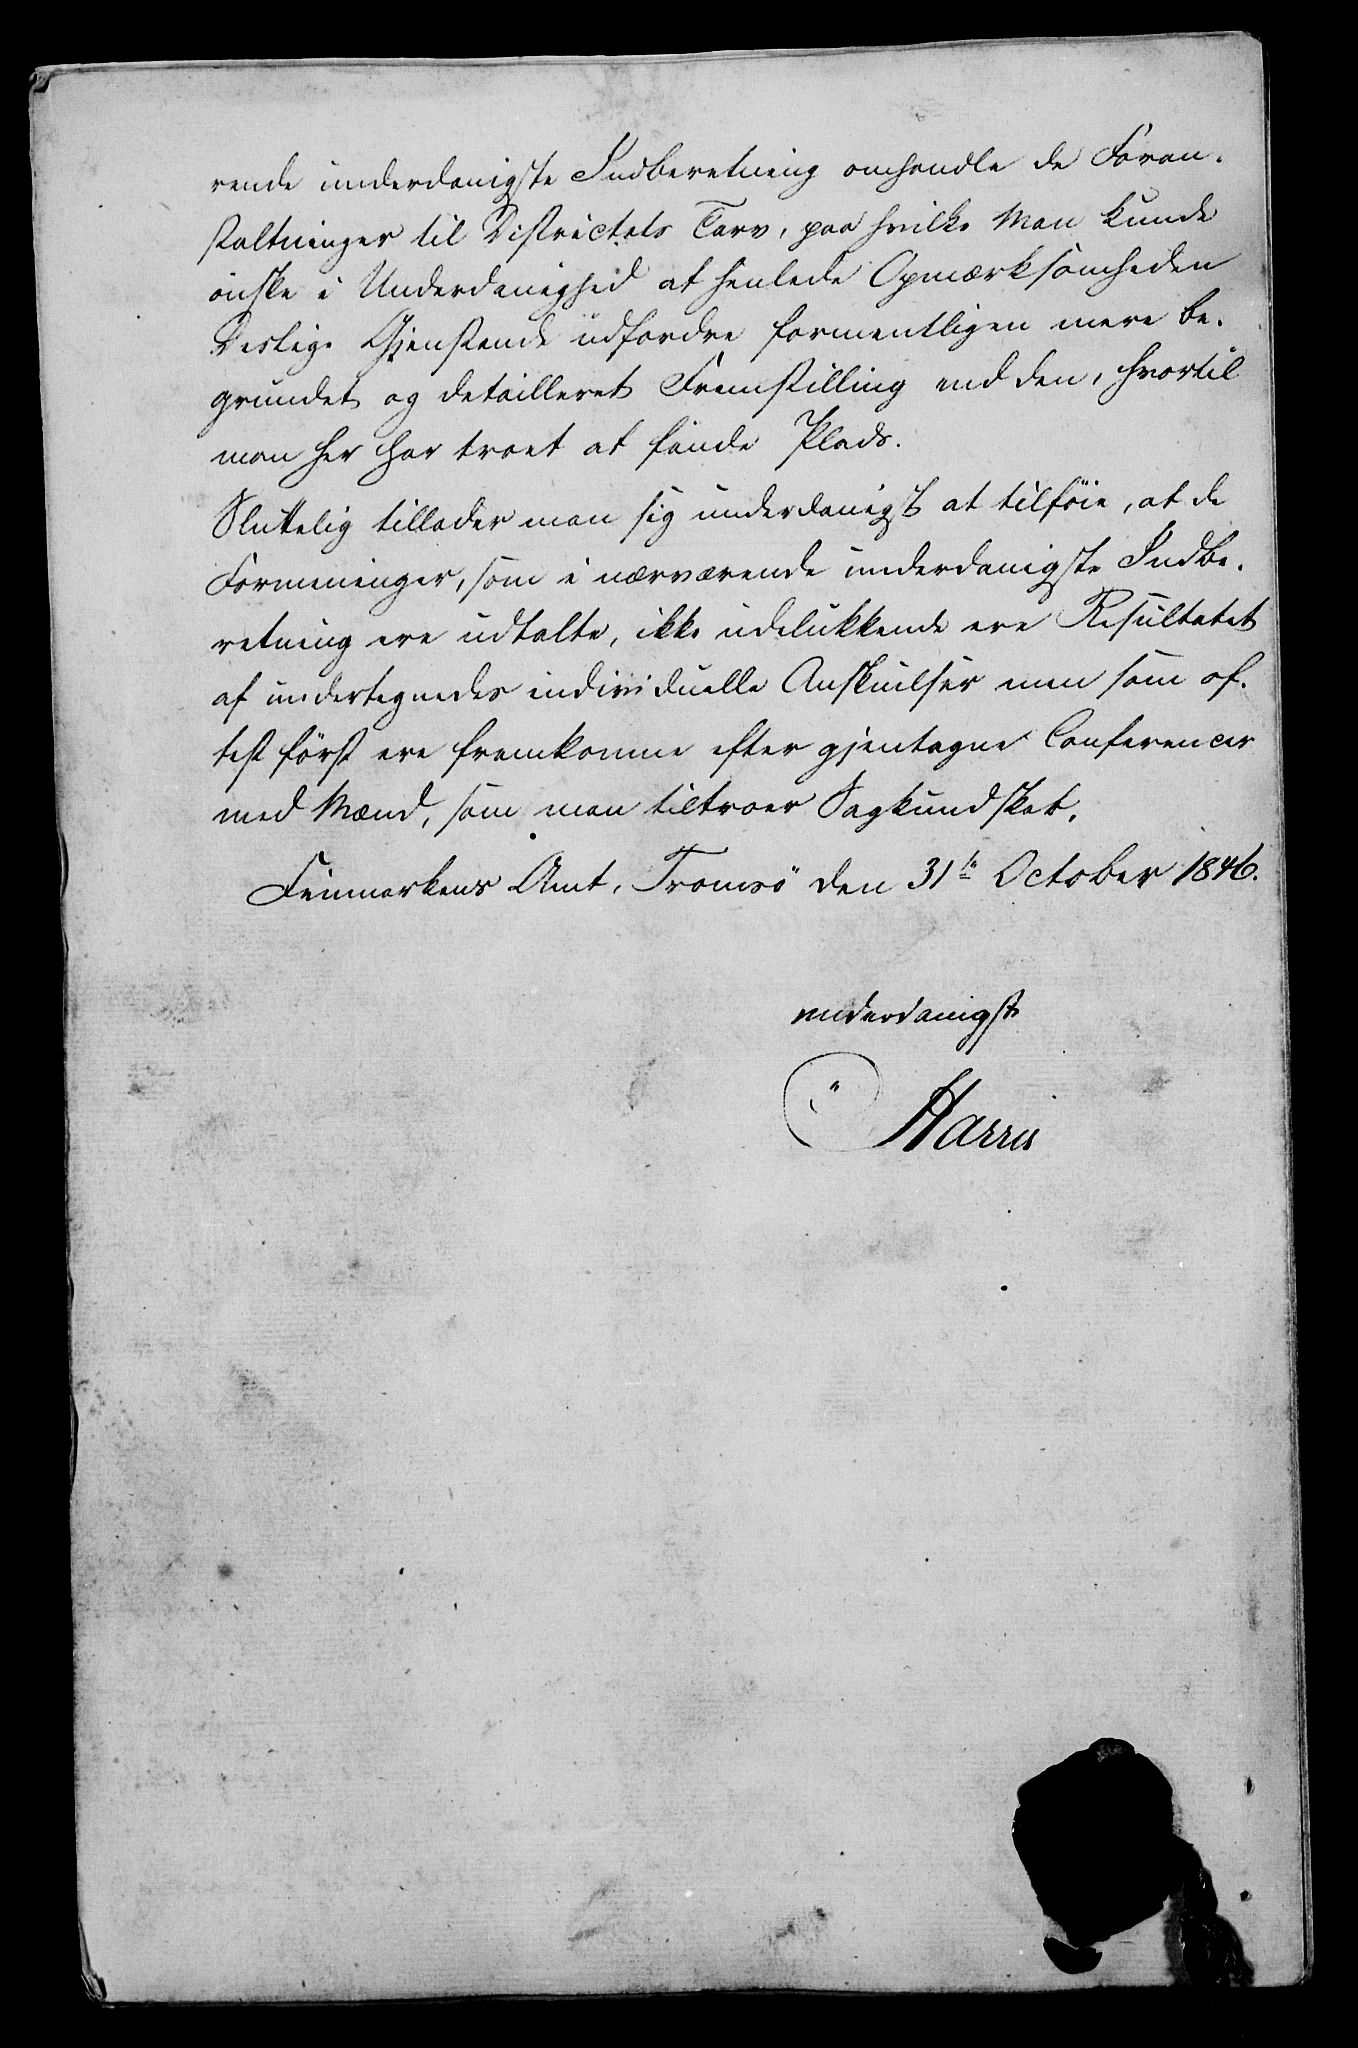 rende underdanigste Indberetning omhandle de Foran-
staltninger til Districtets Tarv, paa hvilke Man kunde
ønske i Underdanighed at henlede Opmærksomheden
Deslige Gjenstande udfordre formentligen mere be-
grundet og detailleret Fremstilling end den, hvortil
man her har troet at finde Plads.
Sluttelig tillader man sig underdanigst at tilføie, at de
Formeninger, som i nærværende underdanigste Indbe-
retning ere udtalte, ikke udelukkende ere Resultatet
af undertegnedes individuelle Anskuelser men som of-
test først ere fremkomne efter gjentagne Conferencer
med Mænd, som man tiltroer Sagkundskab.
Finmarkens Amt, Tromsö den 31te October 1846.
underdanigst
Harris